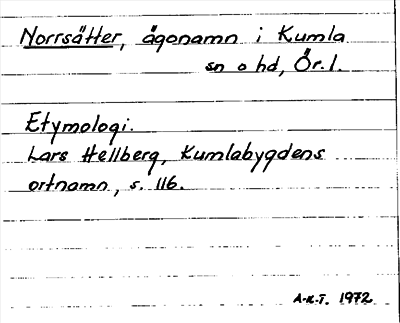 Norrsätter, ägonamn i Kumla
sn o hd, Ör.l.
Etymologi.
Lars Hellberg, Kumlabygdens
ortnamn, s. 116.
A-K.T. 1972